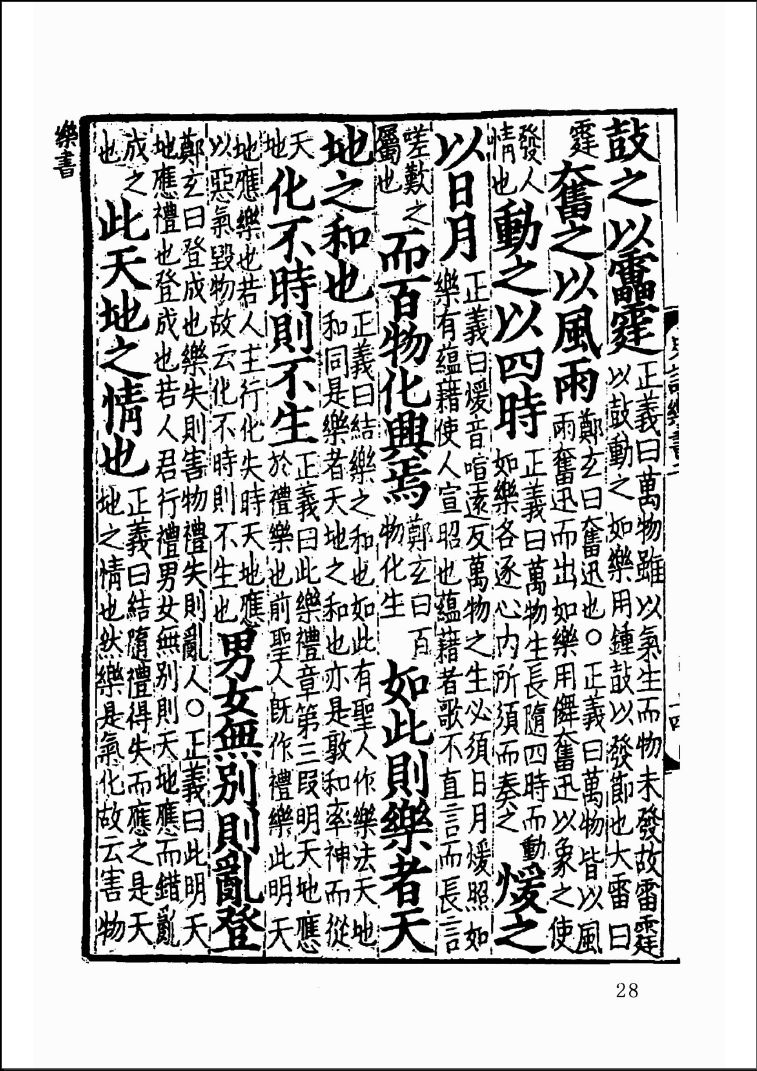 鼔之以靁霆
正義曰萬物雖以氣生而物未發故雷霆
以鼓動之如樂用鍾鼓以發節也大雷曰
霆
奮之以風雨
鄭玄曰奮迅也○正義曰萬物皆以風
雨奮迅而出如樂用儛奮迅以象之使
發人
情也
動之以四時
正義曰萬物生長隨四時而動
如樂各逐心内所須而奏之
煖之
以日月
正義曰煖音喧遠反萬物之生必須日月煖照如
樂有蘊藉使人宣昭也蘊藉者歌不直言而長言
嗟歎之
屬也
而百物化興焉
鄭玄曰百
物化生
如此則樂者天
地之和也
正義曰結樂之和也如此有聖人作樂法天地
和同是樂者天地之和也亦是敦和率神而從
天
地
化不時則不生
正義曰此樂禮章第三段明天地應
於禮樂也前聖人既作禮樂此明天
地應樂也若人主行化失時天地應
以惡氣毀物故云化不時則不生也
男女無别則亂登
鄭玄曰登成也樂失則害物禮失則亂人○正義曰此明天
地應禮也登成也若人君行禮男女無别則天地應而錯亂
成之
也
此天地之情也
正義曰結隨禮得失而應之是天
地之情也然樂是氣化故云害物
樂書
28